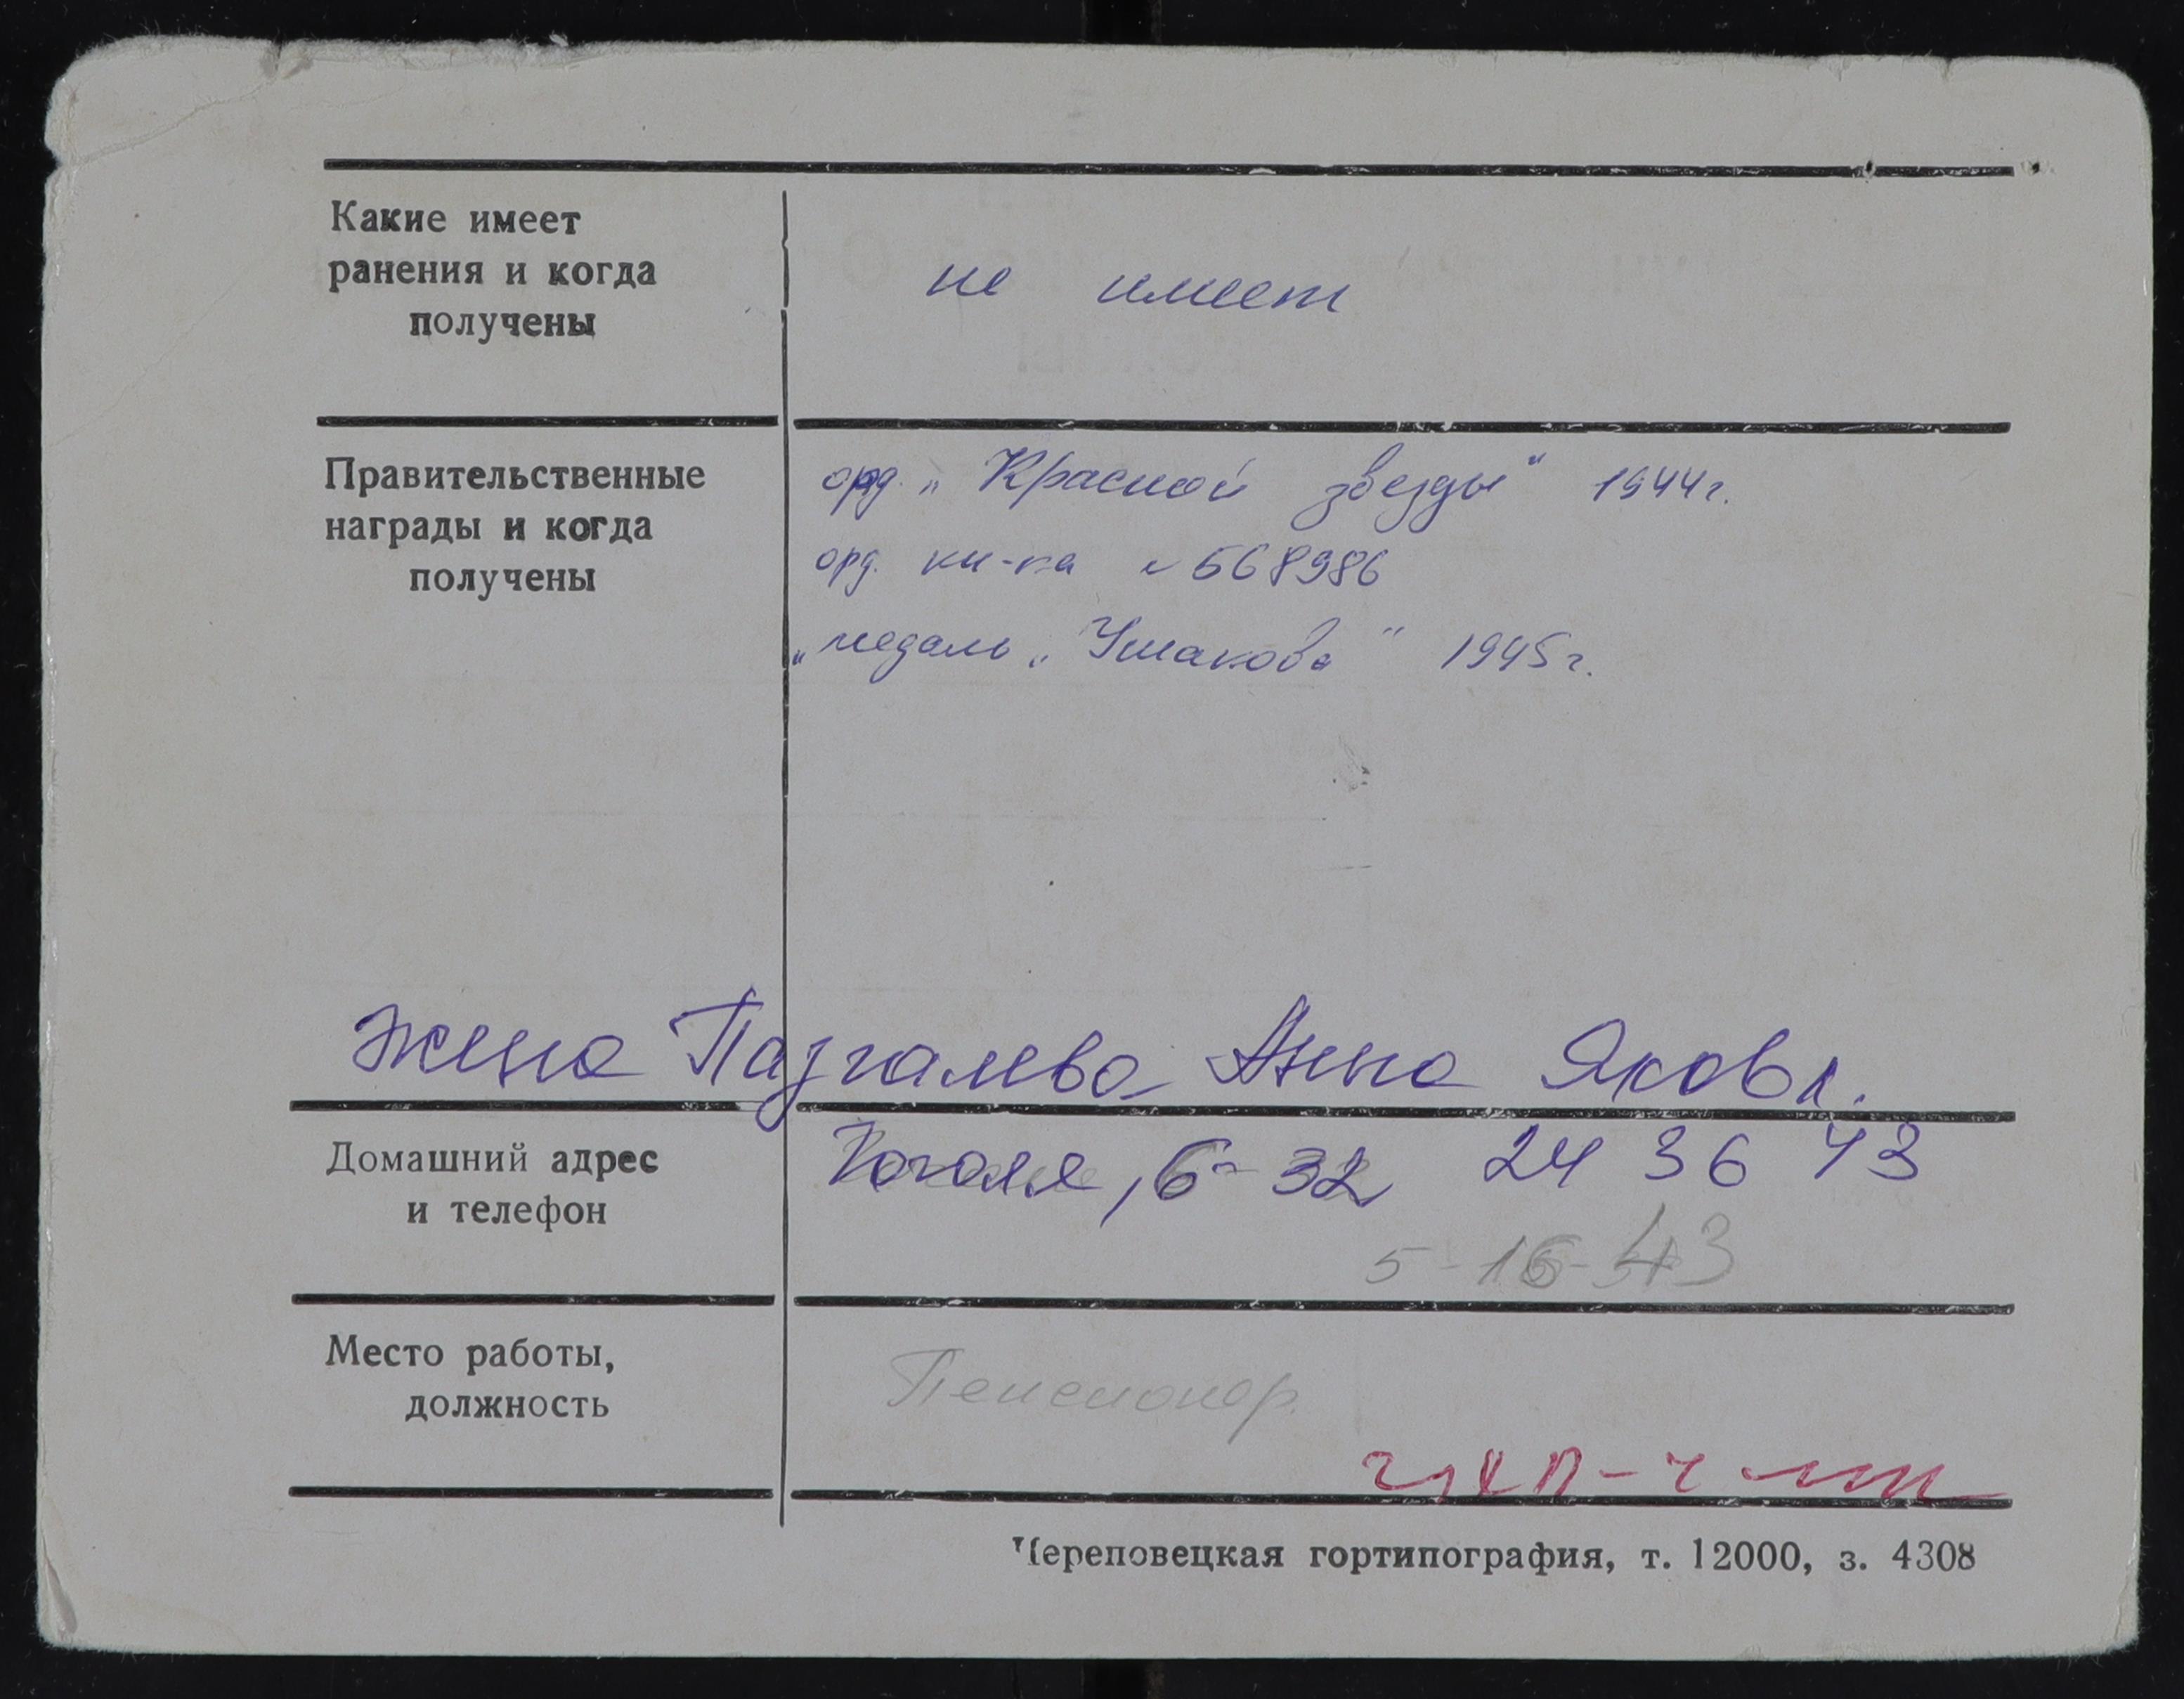 Какие имеет
ранения и когда
получены
не имеет
Правительственные
награды и когда
получены
орд. „Красной звезды" 1944г.
орд. кн-ка № 668986
„медаль „Ушакова" 1945г.
жена Пазгалева Анна Яковл.
Домашний адрес
и телефон
Гоголя, 6-32 24 36 43
5-16-43
Место работы,
должность
Пенсионер.
Череповецкая гортипография, т. 12000, з. 4308